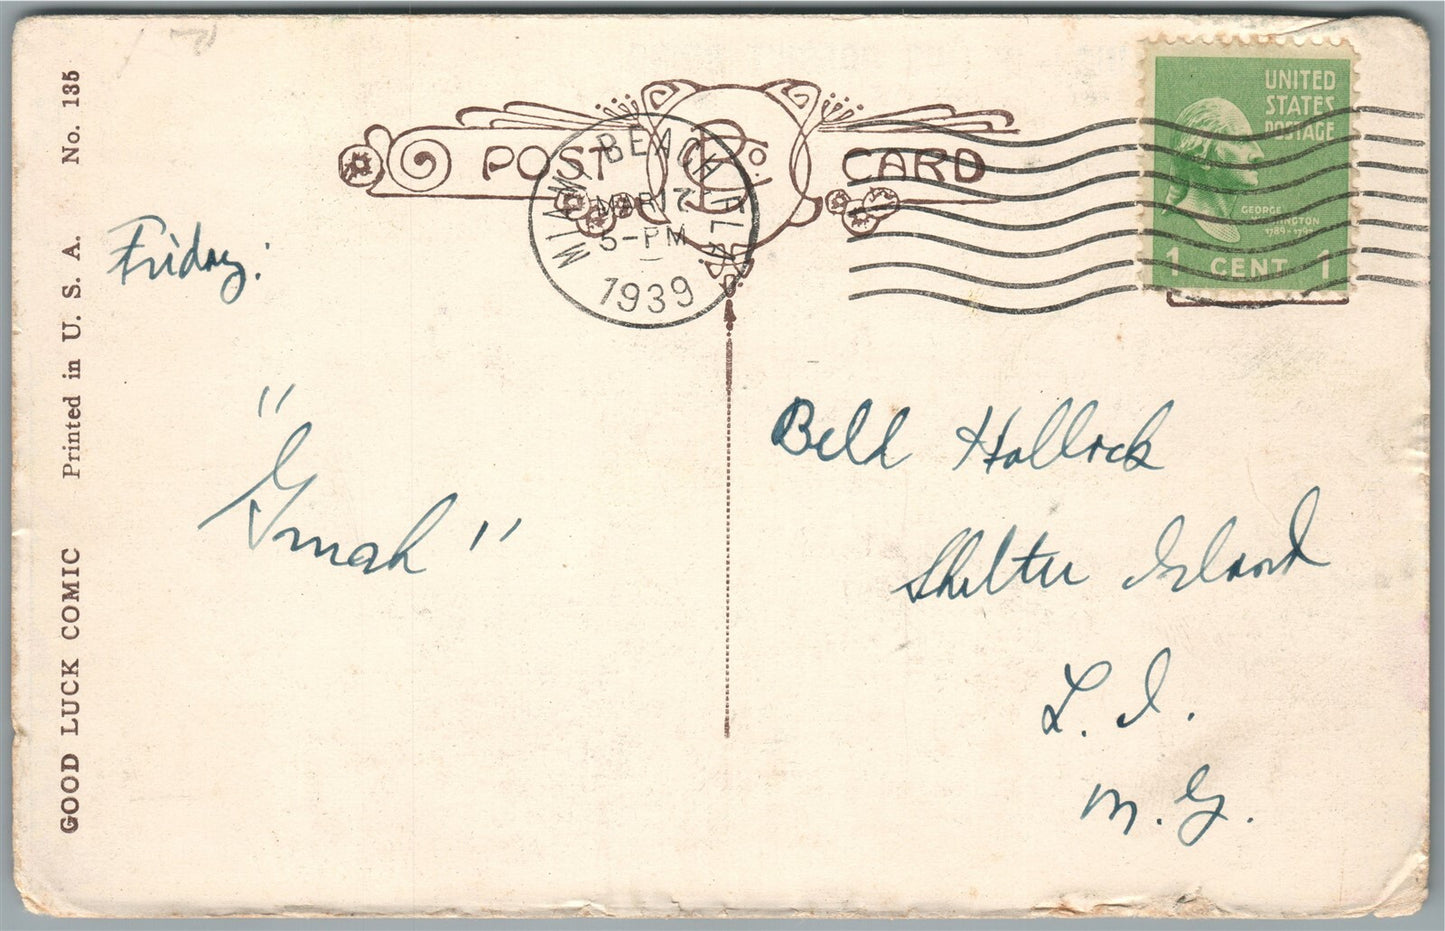 GOOD LUCK COMIC Printed in U. S. A. No. 135
POST CARD
MIAMI BEACH FLA.
MAR 17
5-PM
1939
UNITED
STATES
POSTAGE
GEORGE
WASHINGTON
1789-1797
1 CENT 1
Friday:
"Gmah"
Bell Hallock
Shelter Island
L. I.